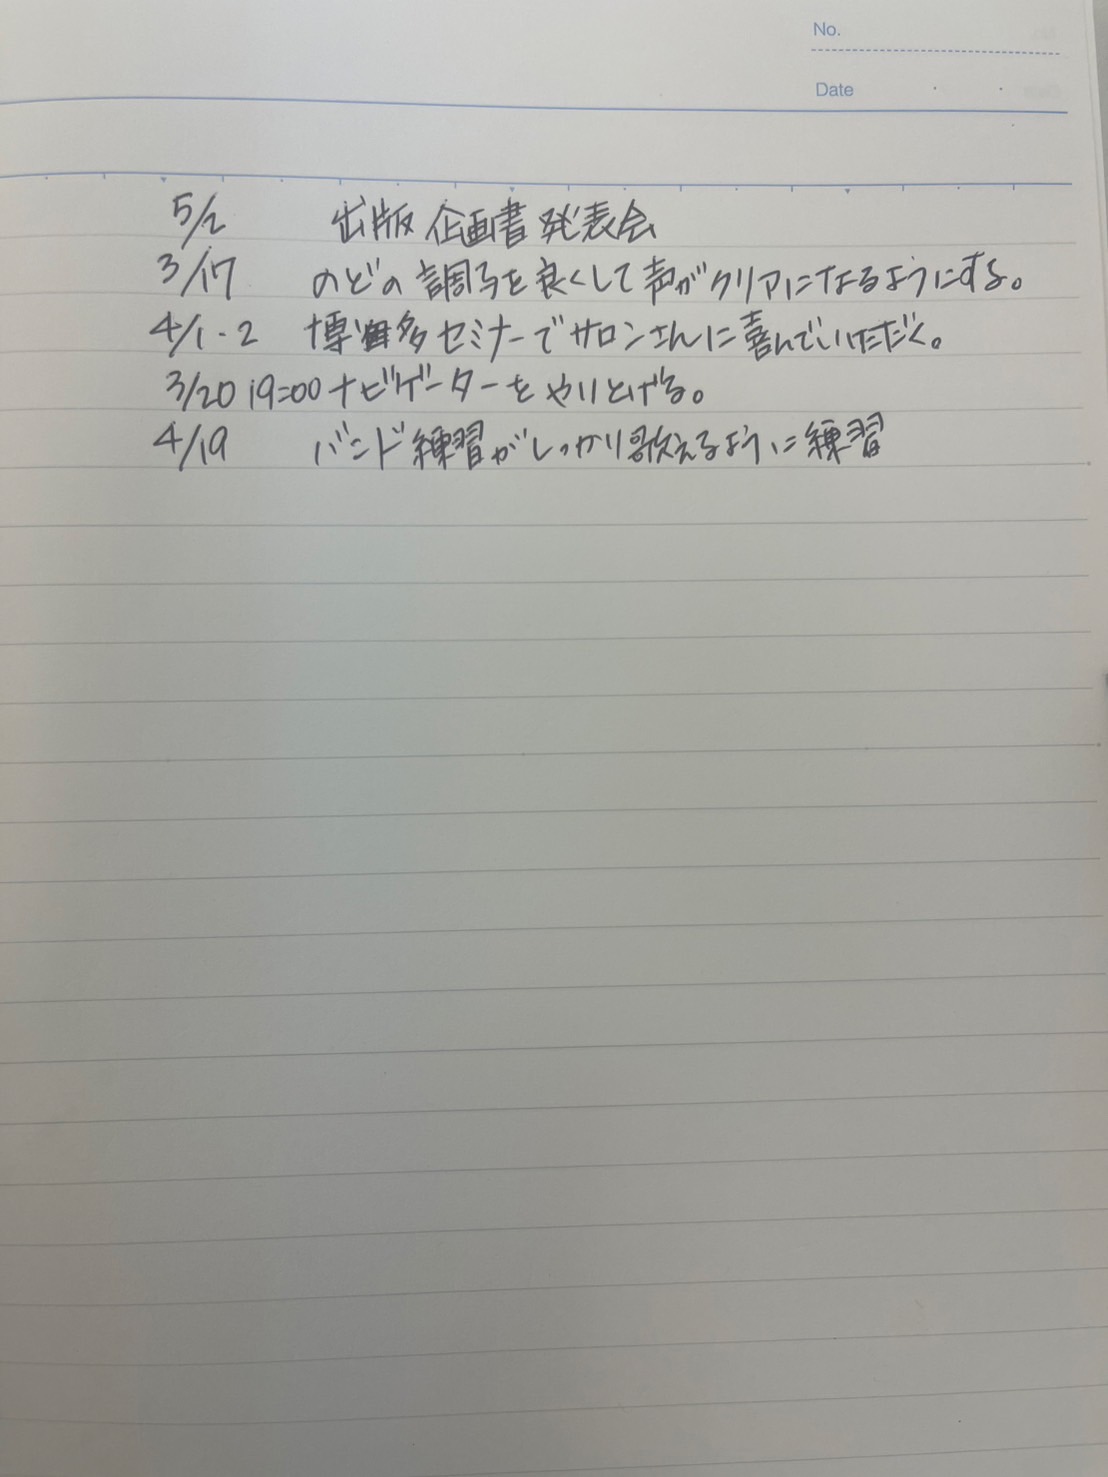 No.
Date
5/2 出版企画書発表会
3/17 のどの調子を良くして声がクリアになるようにする。
4/1・2 博多セミナーでサロンさんに喜んでいただく。
3/20 19:00 ナビゲーターをやりとげる。
4/19 バンド練習がしっかり歌えるように練習